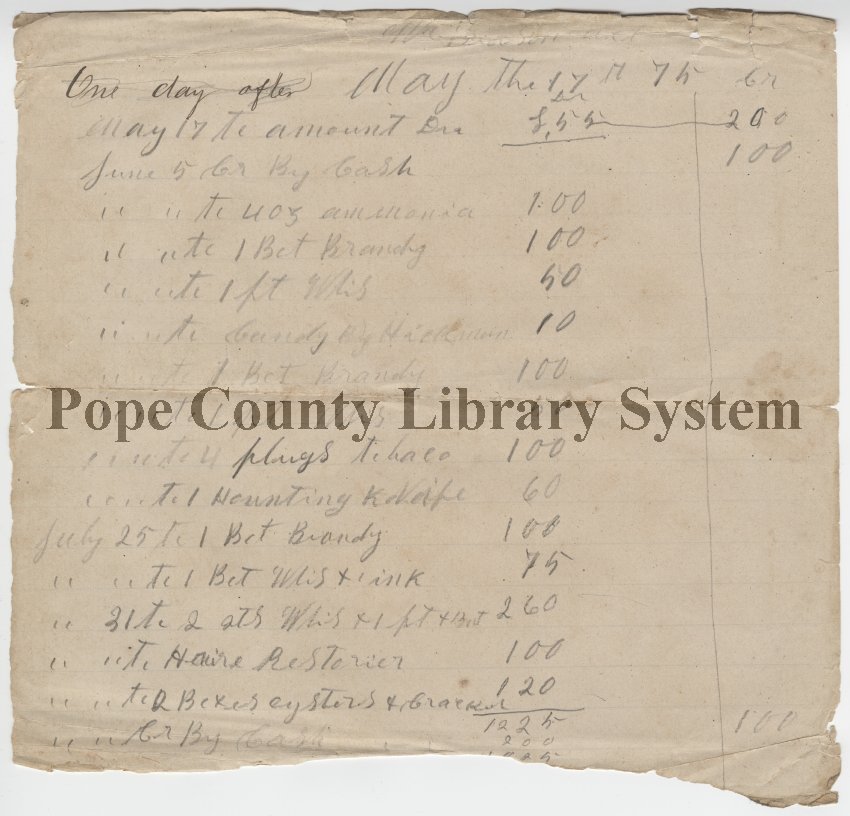 One day after May the 17th 75 Cr
Dr
May 17 to amount Du 8,55 200
June 5 Cr By Cash 100
" " to 4 oz ammonia 1.00
" " to 1 Bot Brandy 100
" " to 1 pt Whis 50
" " to Candy By Hickman 10
" " to 1 Bot Brandy 100
Pope County Library System
" " to 4 plugs tobaco 100
" " to 1 Hounting KNaife 60
July 25 to 1 Bot Brandy 100
" " to 1 Bot Whis & ink 75
" 31 to 2 qts Whis & 1 pt & Bot 260
" " to Haire Restorier 100
" " to 2 Boxes oysters & Cracker 120
1225
" " Cr By Cash 200 100